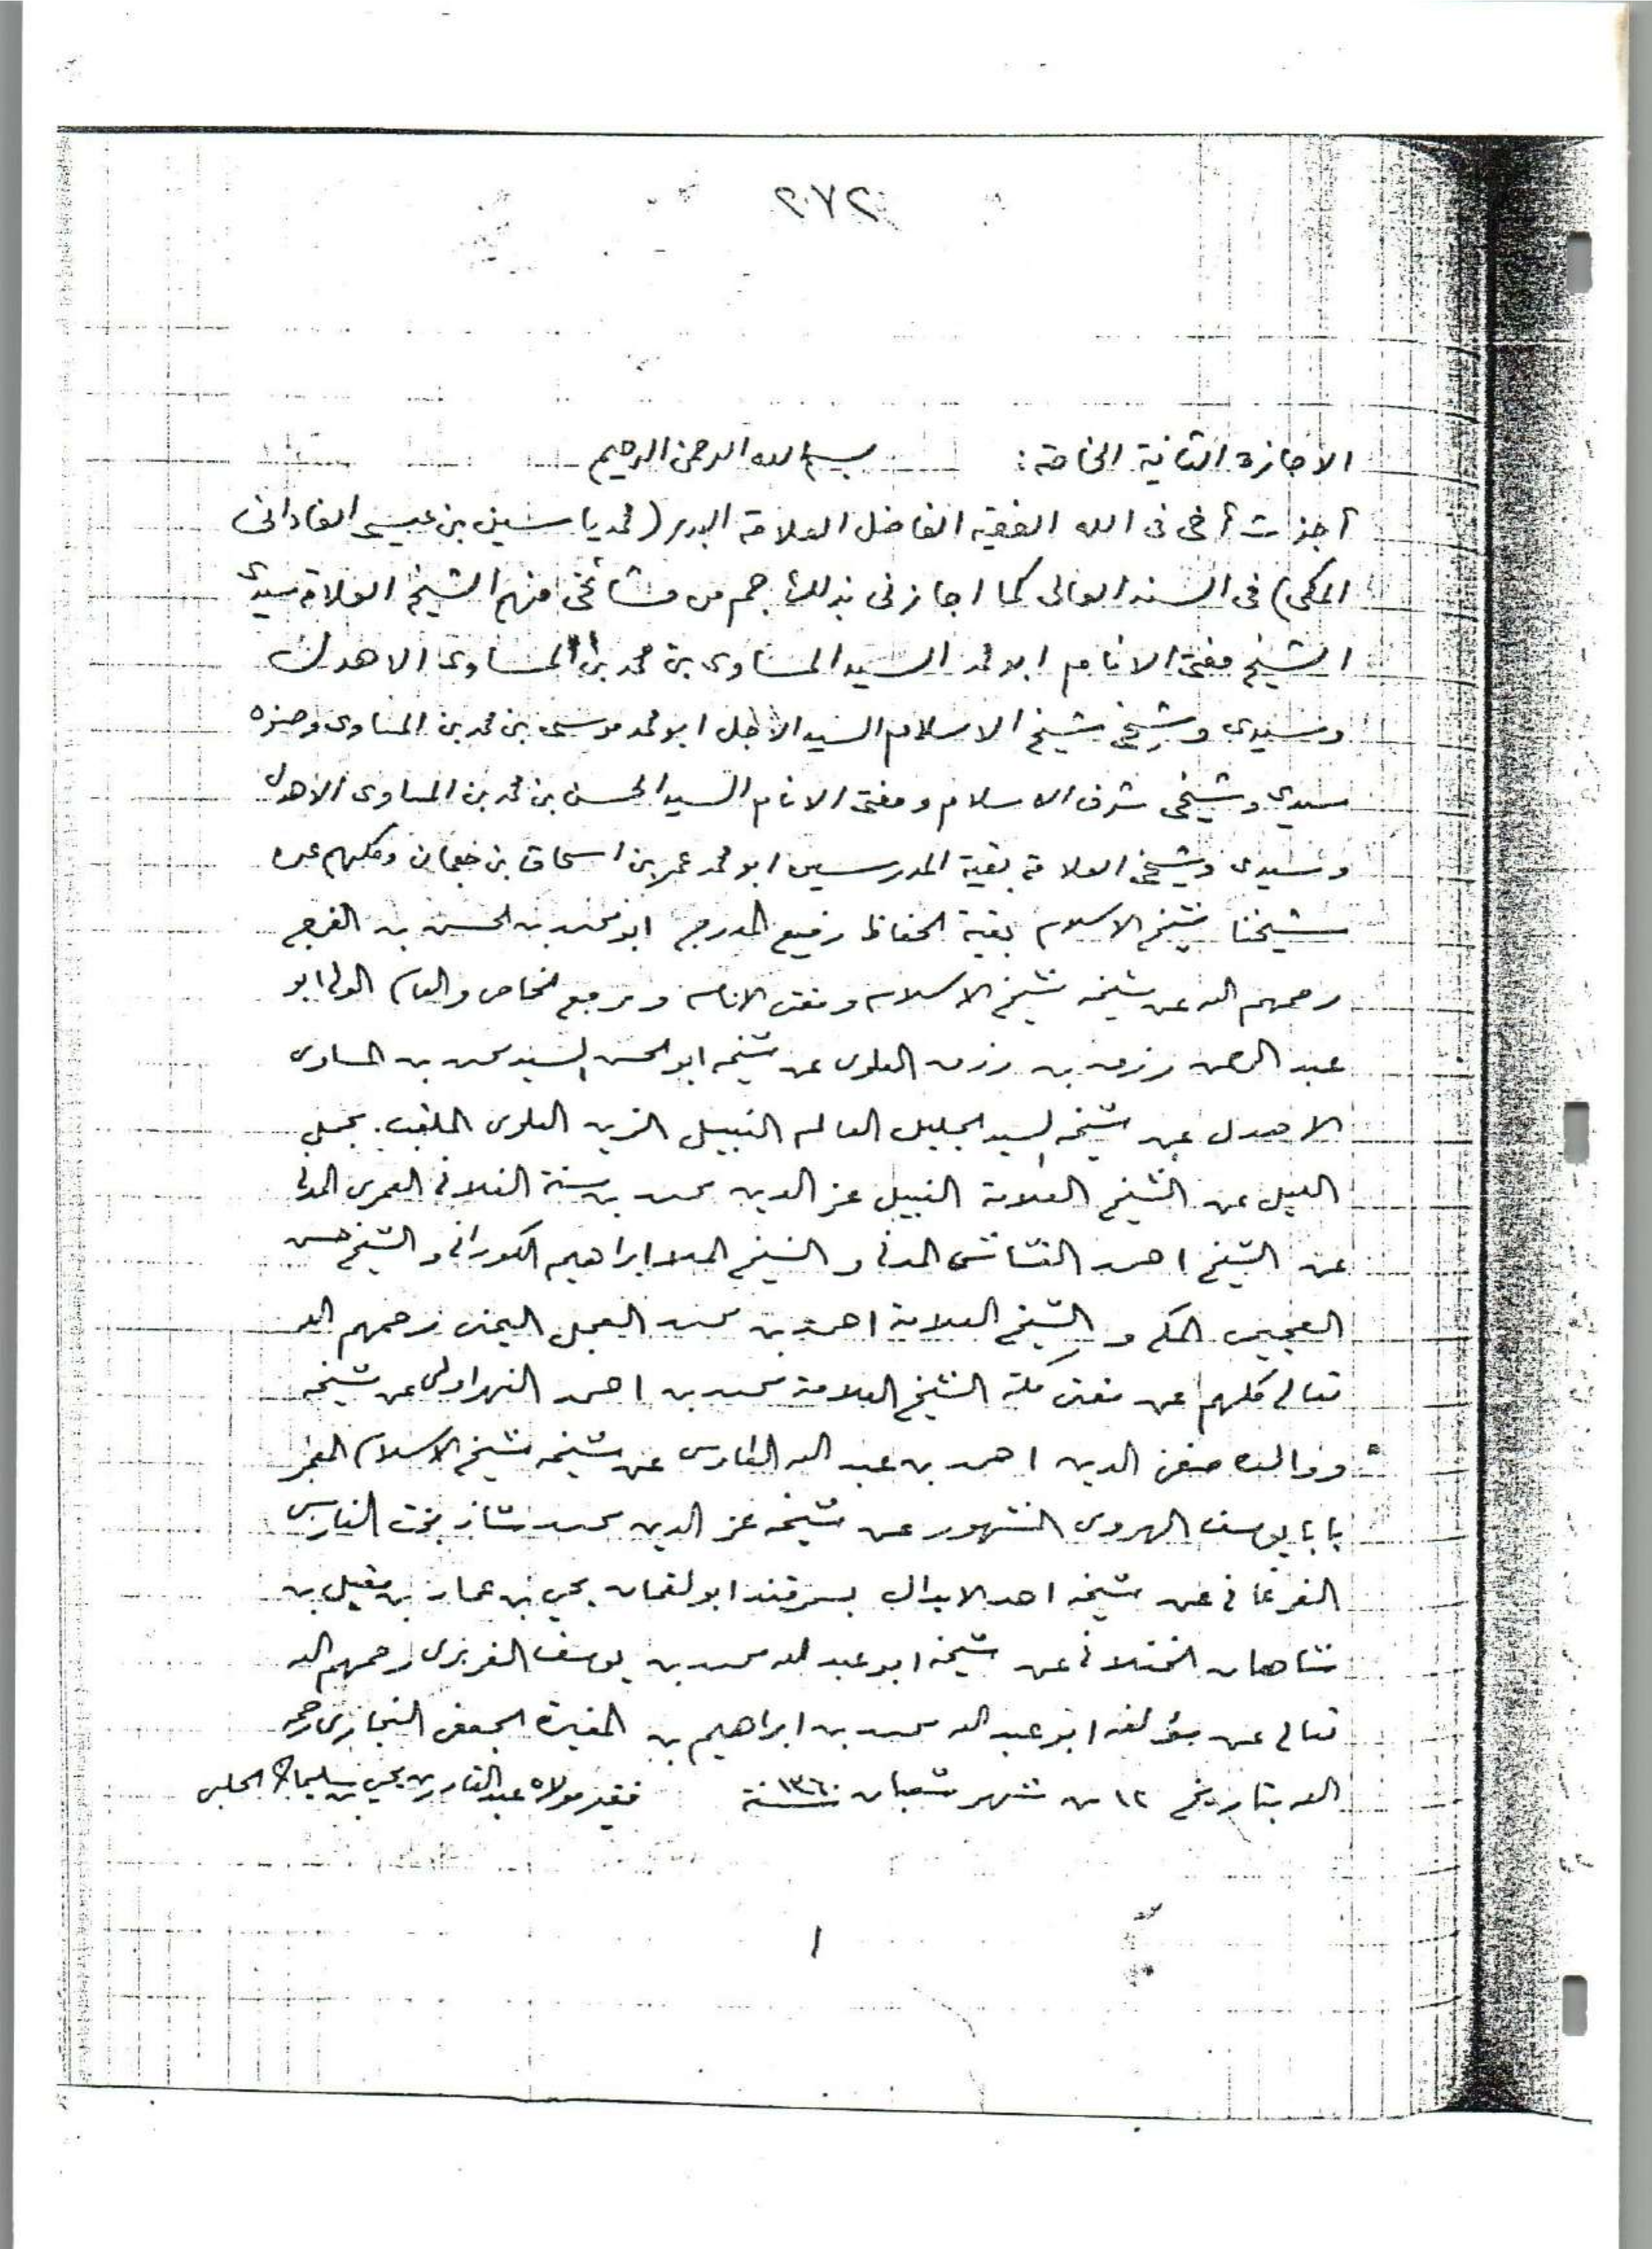 ٢٧٢
الاجازة الثانية الخاصة : بسم الله الرحمن الرحيم
أجزت أخى فى الله الفقيه الفاضل العلامة البدر (محمد ياسين بن عيسى الفادانى
المكى) فى السند العالى كما اجازنى بذلك جم من مشائخى منهم الشيخ العلامة سيدى
الشيخ مفتى الانام ابو محمد السيد المساوى بن محمد بن المساوى الاهدل
وسيدى وشيخى شيخ الاسلام السيد الأجل ابو محمد موسى بن محمد بن المساوى وصنوه
سيدى وشيخى شرف الاسلام ومفتى الانام السيد الحسن بن محمد بن المساوى الاهدل
وسيدى وشيخى العلامة بقية المدرسين ابو محمد عمر بن اسحاق بن جعمان وكلهم عن
شيخنا شيخ الاسلام بقية الحفاظ رفيع الدرج ابو محمد بن الحسن بن الفرج
رحمهم الله عن شيخه شيخ الاسلام ومفتى الانام ومرجع الخاص والعام الولى ابو
عبد الرحمن رزق بن رزق العلوى عن شيخه ابو الحسن السيد محمد بن المساوى
الاهدل عن شيخه السيد الجليل العالم النبيل الزين العلوى الملقب بجمل
الليل عن الشيخ العلامة النبيل عز الدين محمد بن سنة الفلانى العمرى المدنى
عن الشيخ احمد القشاشى المدنى و الشيخ الملا ابراهيم الكورانى و الشيخ حسن
العجيمى المكى و الشيخ العلامة احمد بن محمد العجل اليمنى رحمهم الله
تعالى كلهم عن مفتى مكة الشيخ العلامة محمد بن احمد النهروالى عن شيخه
ووالده صفى الدين احمد بن عبد الله الطاوسى عن شيخه شيخ الاسلام المعمر
بابا يوسف الهروى المشهور عن شيخه عز الدين محمد شاذ بخت الفارسى
الفرغانى عن شيخه احد الابدال بسمرقند ابو لقمان يحيى بن عمار بن مقبل بن
شاهان الختلانى عن شيخه ابو عبد الله محمد بن يوسف الفربرى رحمهم الله
تعالى عن مؤلفه ابو عبد الله محمد بن ابراهيم بن المغيرة الجعفى البخارى رحمه
الله بتاريخ ١٢ من شهر شعبان سنة ١٣٦٠ فقير مولاه عبد القادر بن يحيى بن سليمان الحلبى
١